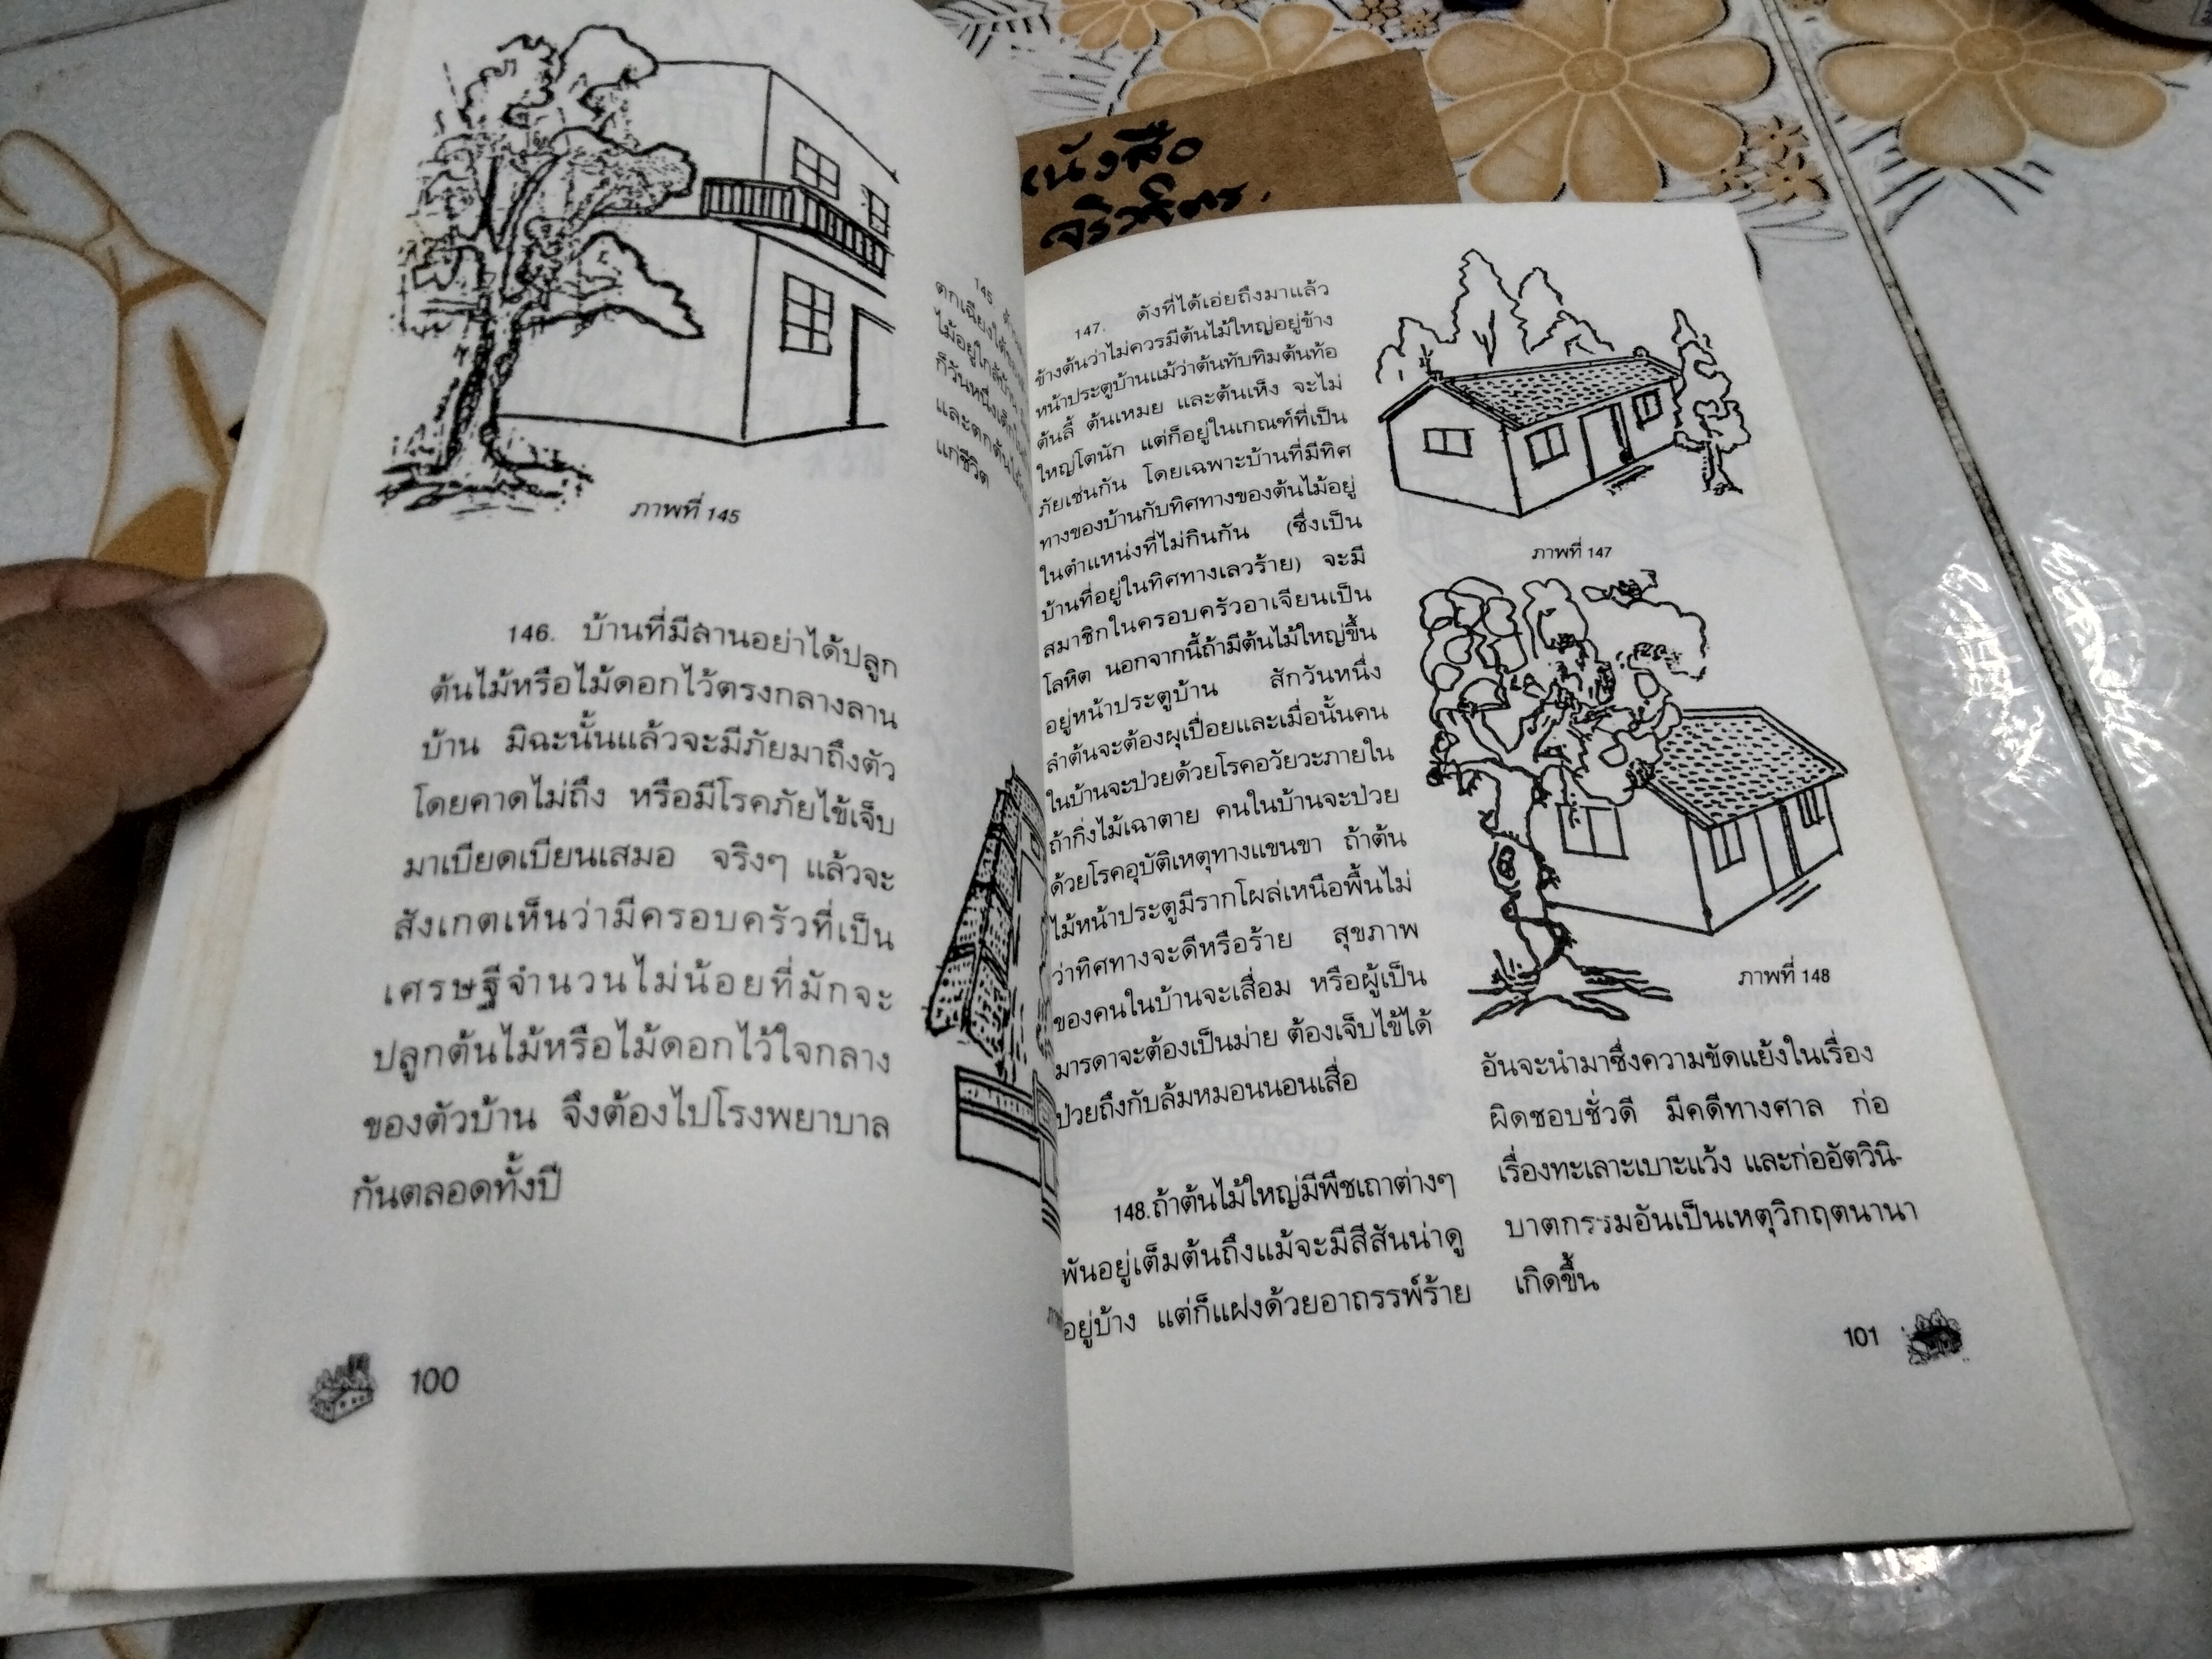 ภาพที่ 145
146. บ้านที่มีลานอย่าได้ปลูก
ต้นไม้หรือไม้ดอกไว้ตรงกลางลาน
บ้าน มิฉะนั้นแล้วจะมีภัยมาถึงตัว
โดยคาดไม่ถึง หรือมีโรคภัยไข้เจ็บ
มาเบียดเบียนเสมอ จริงๆ แล้วจะ
สังเกตเห็นว่ามีครอบครัวที่เป็น
เศรษฐีจำนวนไม่น้อยที่มักจะ
ปลูกต้นไม้หรือไม้ดอกไว้ใจกลาง
ของตัวบ้าน จึงต้องไปโรงพยาบาล
กันตลอดทั้งปี
100
145.
ตกเฉียงใต้
ไม้อยู่ใกล้บ้าน
ก็วันหนึ่งเด็ก
และตกต้นไม้
แก่ชีวิต
หนังสือ
147. ดังที่ได้เอ่ยถึงมาแล้ว
ข้างต้นว่าไม่ควรมีต้นไม้ใหญ่อยู่ข้าง
หน้าประตูบ้านแม้ว่าต้นทับทิมต้นท้อ
ต้นลี้ ต้นเหมย และต้นเห็ง จะไม่
ใหญ่โตนัก แต่ก็อยู่ในเกณฑ์ที่เป็น
ภัยเช่นกัน โดยเฉพาะบ้านที่มีทิศ
ทางของบ้านกับทิศทางของต้นไม้อยู่
ในตำแหน่งที่ไม่กินกัน (ซึ่งเป็น
บ้านที่อยู่ในทิศทางเลวร้าย) จะมี
สมาชิกในครอบครัวอาเจียนเป็น
โลหิต นอกจากนี้ถ้ามีต้นไม้ใหญ่ขึ้น
อยู่หน้าประตูบ้าน สักวันหนึ่ง
ลำต้นจะต้องผุเปื่อยและเมื่อนั้นคน
ในบ้านจะป่วยด้วยโรคอวัยวะภายใน
ถ้ากิ่งไม้เฉาตาย คนในบ้านจะป่วย
ด้วยโรคอุบัติเหตุทางแขนขา ถ้าต้น
ไม้หน้าประตูมีรากโผล่เหนือพื้นไม่
ว่าทิศทางจะดีหรือร้าย สุขภาพ
ของคนในบ้านจะเสื่อม หรือผู้เป็น
มารดาจะต้องเป็นม่าย ต้องเจ็บไข้ได้
ป่วยถึงกับล้มหมอนนอนเสื่อ
148.ถ้าต้นไม้ใหญ่มีพืชเถาต่างๆ
พันอยู่เต็มต้นถึงแม้จะมีสีสันน่าดู
อยู่บ้าง แต่ก็แฝงด้วยอาถรรพ์ร้าย
ภาพที่ 147
ภาพที่ 148
อันจะนำมาซึ่งความขัดแย้งในเรื่อง
ผิดชอบชั่วดี มีคดีทางศาล ก่อ
เรื่องทะเลาะเบาะแว้ง และก่ออัตวินิ-
บาตกรรมอันเป็นเหตุวิกฤตนานา
เกิดขึ้น
101